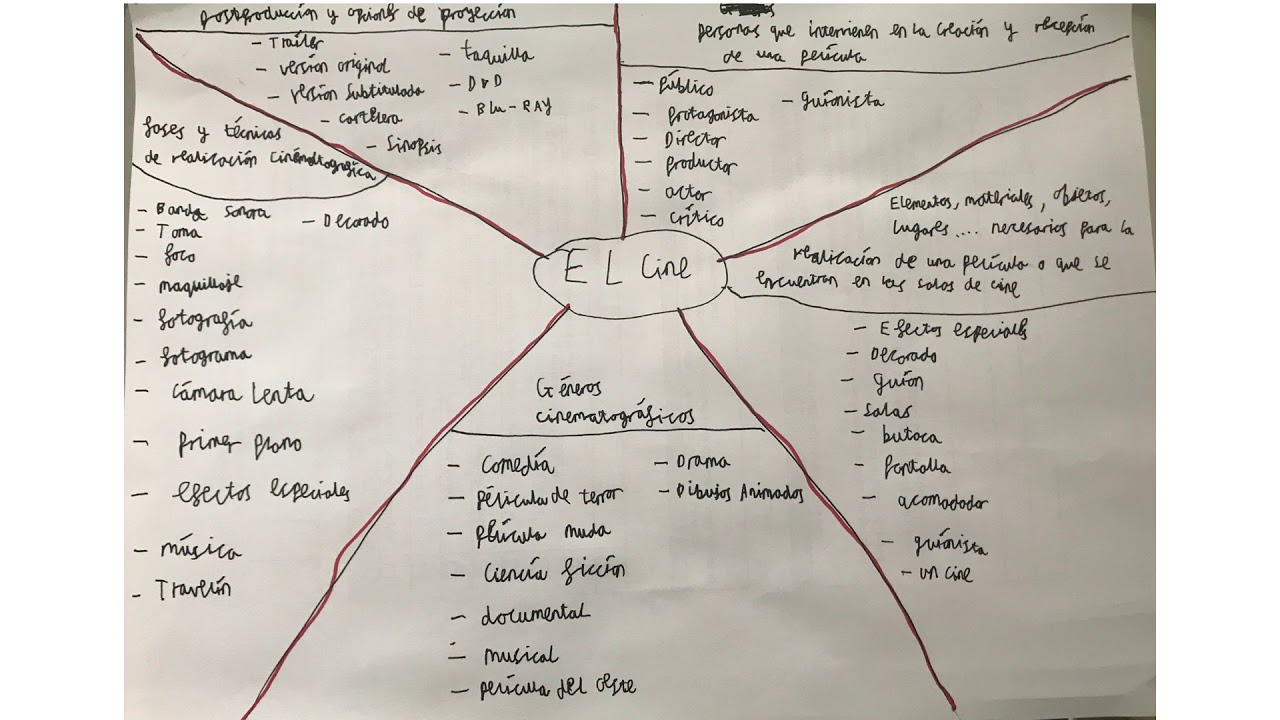 EL Cine
postproducción y opciones de proyección
- Tráiler
- versión original
- versión subtitulada
- cartelera
- Sinopsis
- taquilla
- DVD
- Blu-RAY
personas que intervienen en la creación y recepción
de una película
- Público
- protagonista
- Director
- productor
- actor
- crítico
- guionista
Elementos, materiales, objetos,
lugares .... necesarios para la
realización de una película o que se
encuentran en las salas de cine
- Efectos especiales
- Decorado
- guión
- salas
- butaca
- pantalla
- acomodador
- guionista
- un cine
Géneros
cinematográficos
- comedía
- película de terror
- película muda
- ciencia ficción
- documental
- musical
- película del oeste
- Drama
- Dibujos Animados
fases y técnicas
de realización cinematográfica
- Banda sonora
- Toma
- foco
- maquillaje
- fotografía
- fotograma
- cámara lenta
- primer plano
- efectos especiales
- música
- Travelín
- Decorado